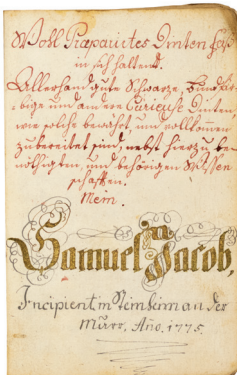 Wohl Præparirtes Dinten faß
in sich haltend.
Allerhand gute Schwarze, Bundfär-
bige und andere Curieuse Dinten,
wie solche bewährt, und vollkomen
zubereitet sind, nebst hierzu be-
nöthigten, und behörigen Wissen
schafften.
Mein.
Samuel Jacob,
Incipient, in Steinheim an der
Murr. Año. 1775